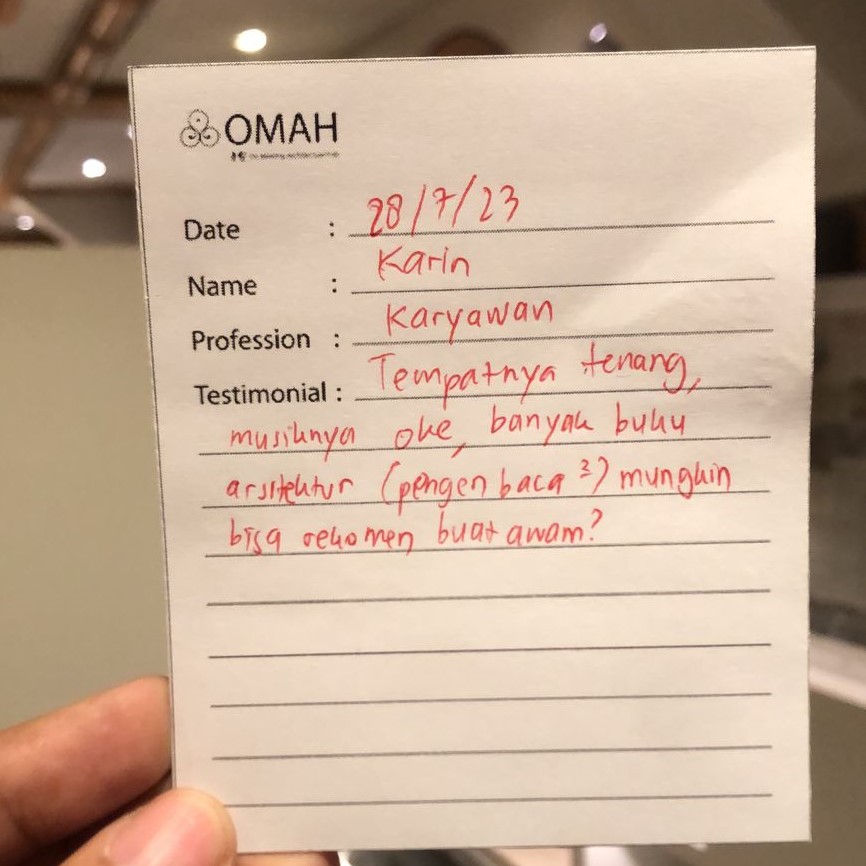 OMAH
Date : 28/7/23
Name : Karin
Profession : Karyawan
Testimonial : Tempatnya tenang,
musiknya oke, banyak buku
arsitektur (pengen baca²) mungkin
bisa rekomen buat awam?